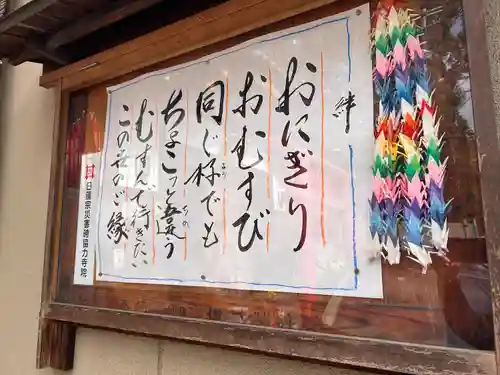 絆
おにぎり
おむすび
同じ様でも
よう
ちょこっと違う
ちの
むすんで行きたい
この世のご縁
日蓮宗災害時協力寺院